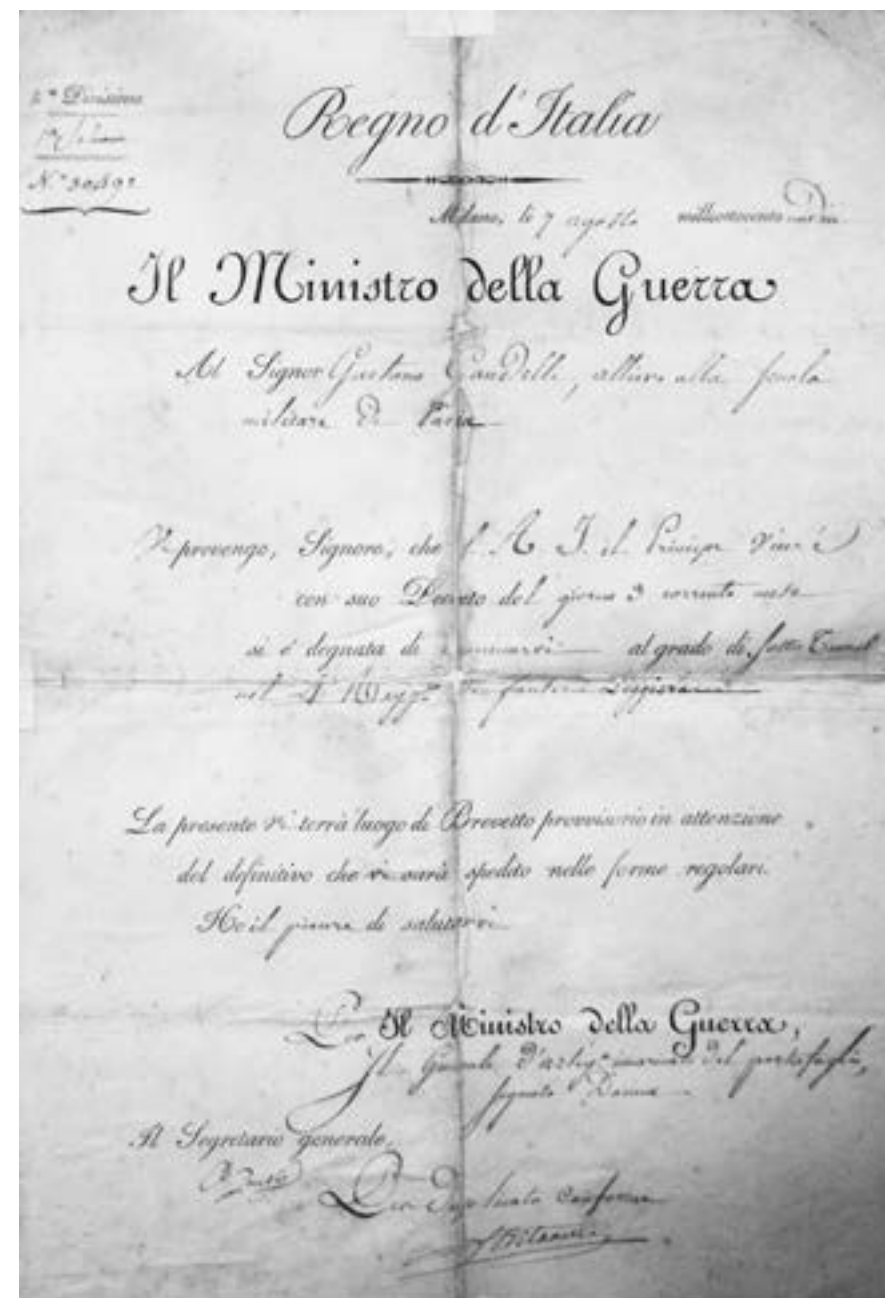 Divisione
Regno d'Italia
Milano, li 7 agosto milleottocento
Il Ministro della Guerra
Al Signor Gaetano , allievo alla scuola
militare di Pavia
Vi prevengo, Signore, che S. A. I. il Principe Vicerè
con suo Decreto del giorno 3 corrente mese
si è degnata di nominarvi al grado di Sotto Tenente
nel fanteria Leggiera
La presente vi terrà luogo di Brevetto provvisorio in attenzione
del definitivo che vi sarà spedito nelle forme regolari.
Ho il piacere di salutarvi
Per Il Ministro della Guerra,
Il Generale d'artiglia incaricato del portafoglio,
segnato Danna
Il Segretario generale,
Per Duplicato Conforme